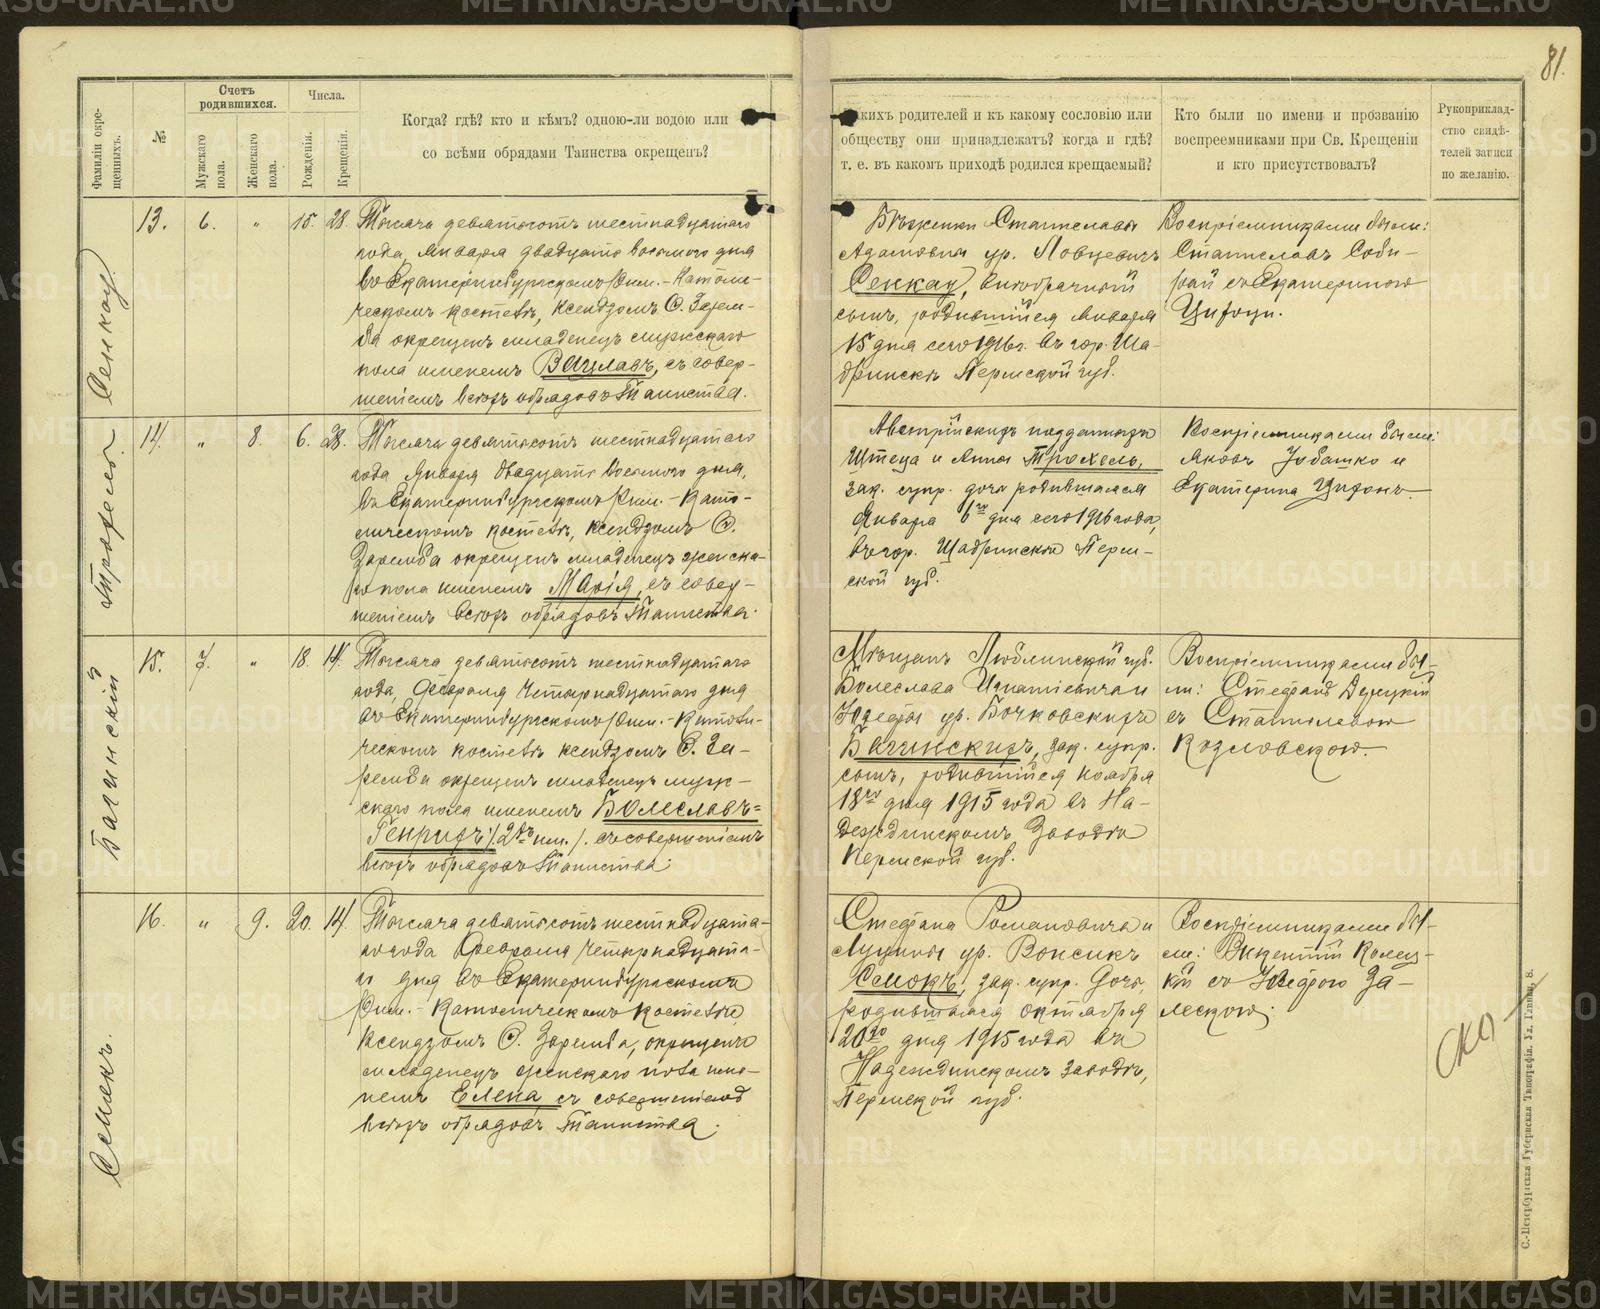 81.
Фамиліи окре-
щенныхъ.
№
Счетъ
родившихся.
Мужскаго
пола.
Женскаго
пола.
Числа.
Рожденія.
Крещенія.
Когда? гдѣ? кто и кѣмъ? одною-ли водою или
со всѣми обрядами Таинства окрещенъ?
какихъ родителей и къ какому сословію или
обществу они принадлежатъ? когда и гдѣ?
т. е. въ какомъ приходѣ родился крещаемый?
Кто были по имени и прозванію
воспреемниками при Св. Крещеніи
и кто присутствовалъ?
Рукоприклад-
ство свидѣ-
телей записи
по желанію.
13. 6. " 15. 28.
Тысяча девятьсотъ шестнадцатаго
года, Января двадцать восьмого дня
въ Екатеринбургскомъ Рим.-Католи-
ческомъ костелѣ, ксендзомъ С. Зарем-
ба окрещенъ младенецъ мужскаго
пола именемъ Вацлавъ, съ совер-
шеніемъ всѣхъ обрядовъ Таинства.
Бѣженки Станиславы
Адамовны ур.
сынъ, родившійся Января
15 дня сего 1916 г. въ гор. Ша-
дринскѣ Пермской губ.
Воспріемниками были:
Станиславъ
съ Екатериною
14. " 8. 6. 28.
Трохель.
Тысяча девятьсотъ шестнадцатаго
года Января двадцать восьмого дня,
въ Екатеринбургскомъ Рим.-Като-
лическомъ костелѣ, ксендзомъ С.
Заремба окрещенъ младенецъ женска-
го пола именемъ Марія, съ совер-
шеніемъ всѣхъ обрядовъ Таинства.
Австрійскихъ подданныхъ
и Анны Трохель,
зак. супр. дочь родившаяся
Января 6го дня сего 1916 года,
въ гор. Шадринскѣ Перм-
ской губ.
Воспріемниками были:
Яковъ и
Екатерина
15. 7. " 18. 14.
Багинскій
Тысяча девятьсотъ шестнадцатаго
года, Февраля четырнадцатаго дня
въ Екатеринбургскомъ Рим.-Католи-
ческомъ костелѣ ксендзомъ С. За-
ремба окрещенъ младенецъ муж-
скаго пола именемъ Болеславъ-
Генрихъ /2хъ им./ съ совершеніемъ
всѣхъ обрядовъ Таинства.
Мѣщанъ Люблинской губ.
Болеслава Игнатіевича и
Юзефы ур. Бочковскихъ
Багинскихъ, зак. супр.
сынъ, родившійся ноября
18го дня 1915 года въ На-
деждинскомъ Заводѣ
Пермской губ.
Воспріемниками бы-
ли: Стефанъ
съ Станиславою
Козловскою.
16. " 9. 20. 14.
Семокъ.
Тысяча девятьсотъ шестнадцата-
го года Февраля четырнадцата-
го дня въ Екатеринбургскомъ
Рим.-Католическомъ костелѣ,
ксендзомъ С. Заремба, окрещенъ
младенецъ женскаго пола име-
немъ Елена съ совершеніемъ
всѣхъ обрядовъ Таинства.
Стефана Романовича и
ур.
Семокъ, зак. супр. дочь,
родившаяся октября
20го дня 1915 года въ
Надеждинскомъ заводѣ,
Пермской губ.
Воспріемниками бы-
ли: Викентій
съ Юзефою За-
лескою.
С.-Петербургская Губернская Типографія.
METRIKI.GASO-URAL.RU